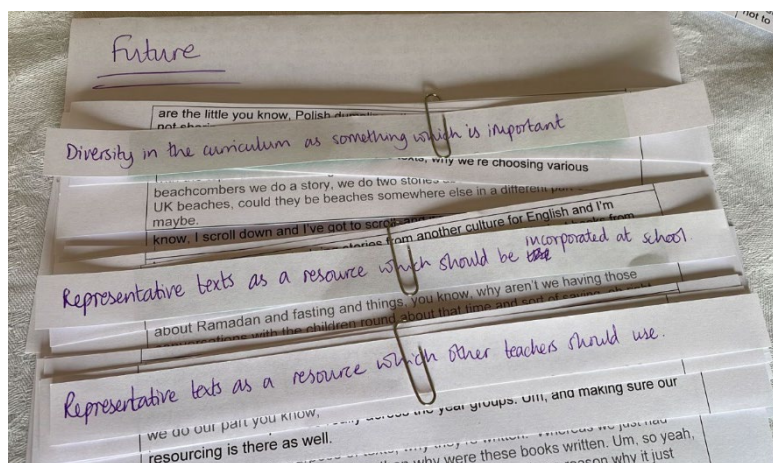 not to
Future
are the little you know, Polish
Diversity in the curriculum as something which is important
why we're choosing various
beachcombers we do a story, we do two stories
UK beaches, could they be beaches somewhere else in a different
maybe.
know, I scroll down and I've got to scroll and
stories from another culture for English and I'm
Representative texts as a resource which should be incorporated at school.
about Ramadan and fasting and things, you know, why aren't we having those
conversations with the children round about that time and sort of saying,
Representative texts as a resource which other teachers should use.
we do our part you know,
across the year groups. Um, and making sure our
resourcing is there as well.
why were these books written. Um, so yeah,
reason why it just